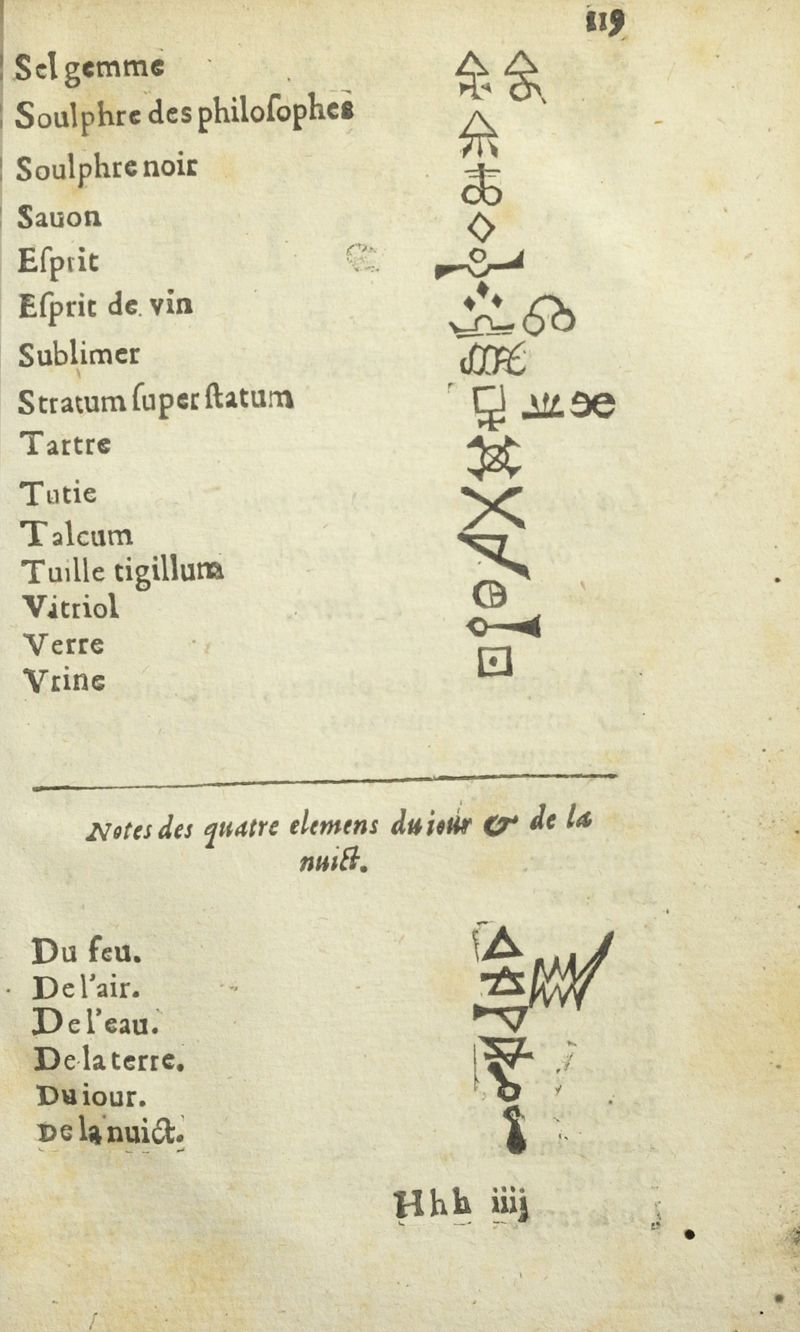 119
Sel gemme
Soulphre des philoſophes
Soulphre noir
Sauon
Eſprit
Eſprit de vin
Sublimer
Stratum ſuper ſtatum
Tartre
Tutie
Talcum
Tuille tigillum
Vitriol
Verre
Vrine
Notes des quatre elemens du iour & de la
nuict.
Du feu.
De l'air.
De l'eau.
De la terre.
Du iour.
De la nuict.
Hhh iiij